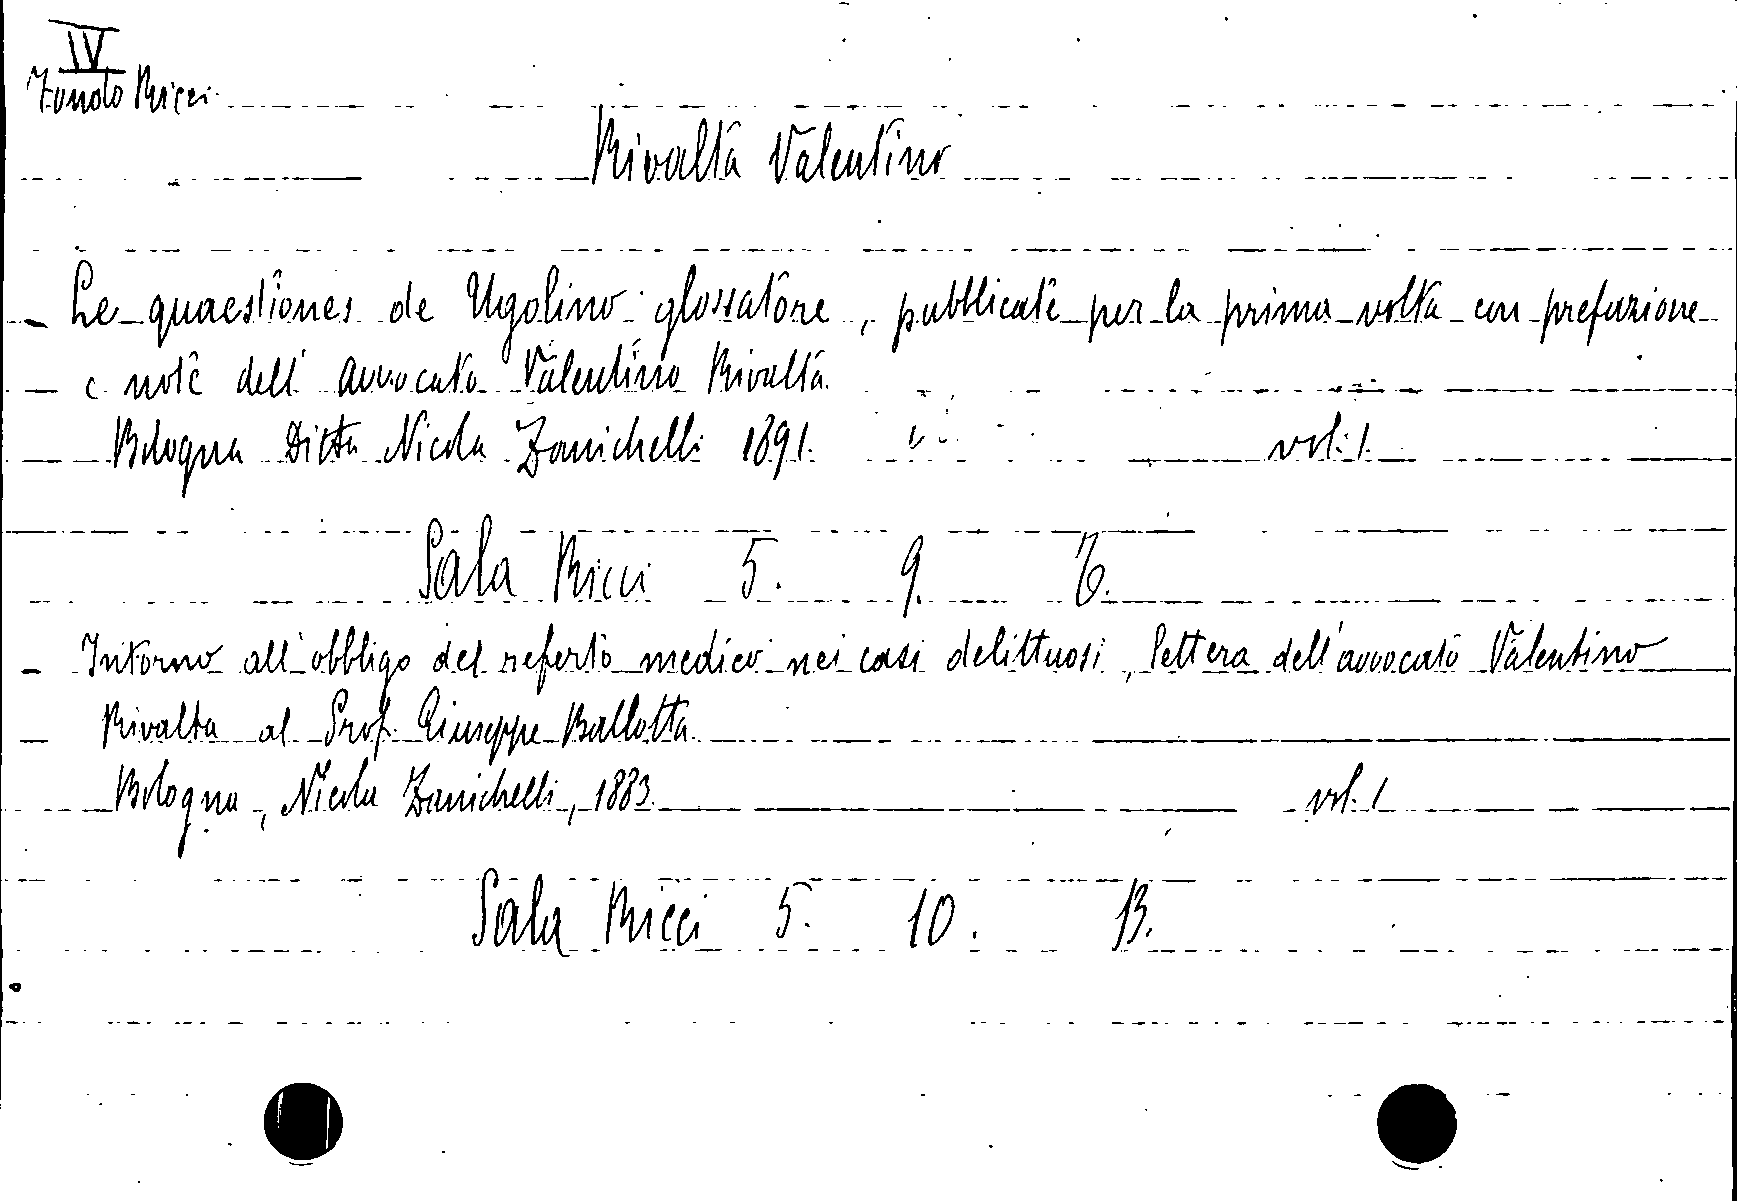 IV
Fondo Ricci
Rivalta Valentino
Le quaestiones de Ugolino glossatore, pubblicate per la prima volta con prefazione
e note dell'avvocato Valentino Rivalta
Bologna Ditta Nicola Zanichelli 1891. vol. 1
Sala Ricci 5. 9. 6.
Intorno all'obbligo del referto medico nei casi delittuosi, lettera dell'avvocato Valentino
Rivalta al Prof. Giuseppe Ballotta
Bologna, Nicola Zanichelli, 1883 vol. 1
Sala Ricci 5. 10. 13.